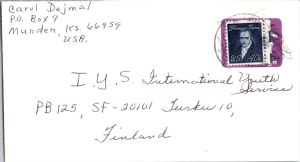 Carol Dejmal
P.O. Box 9
Munden, Ks. 66959
U.S.A.
U.S. 40c
I.Y.S International Youth
Service
PB 125, SF-20101 Turku 10,
Finland